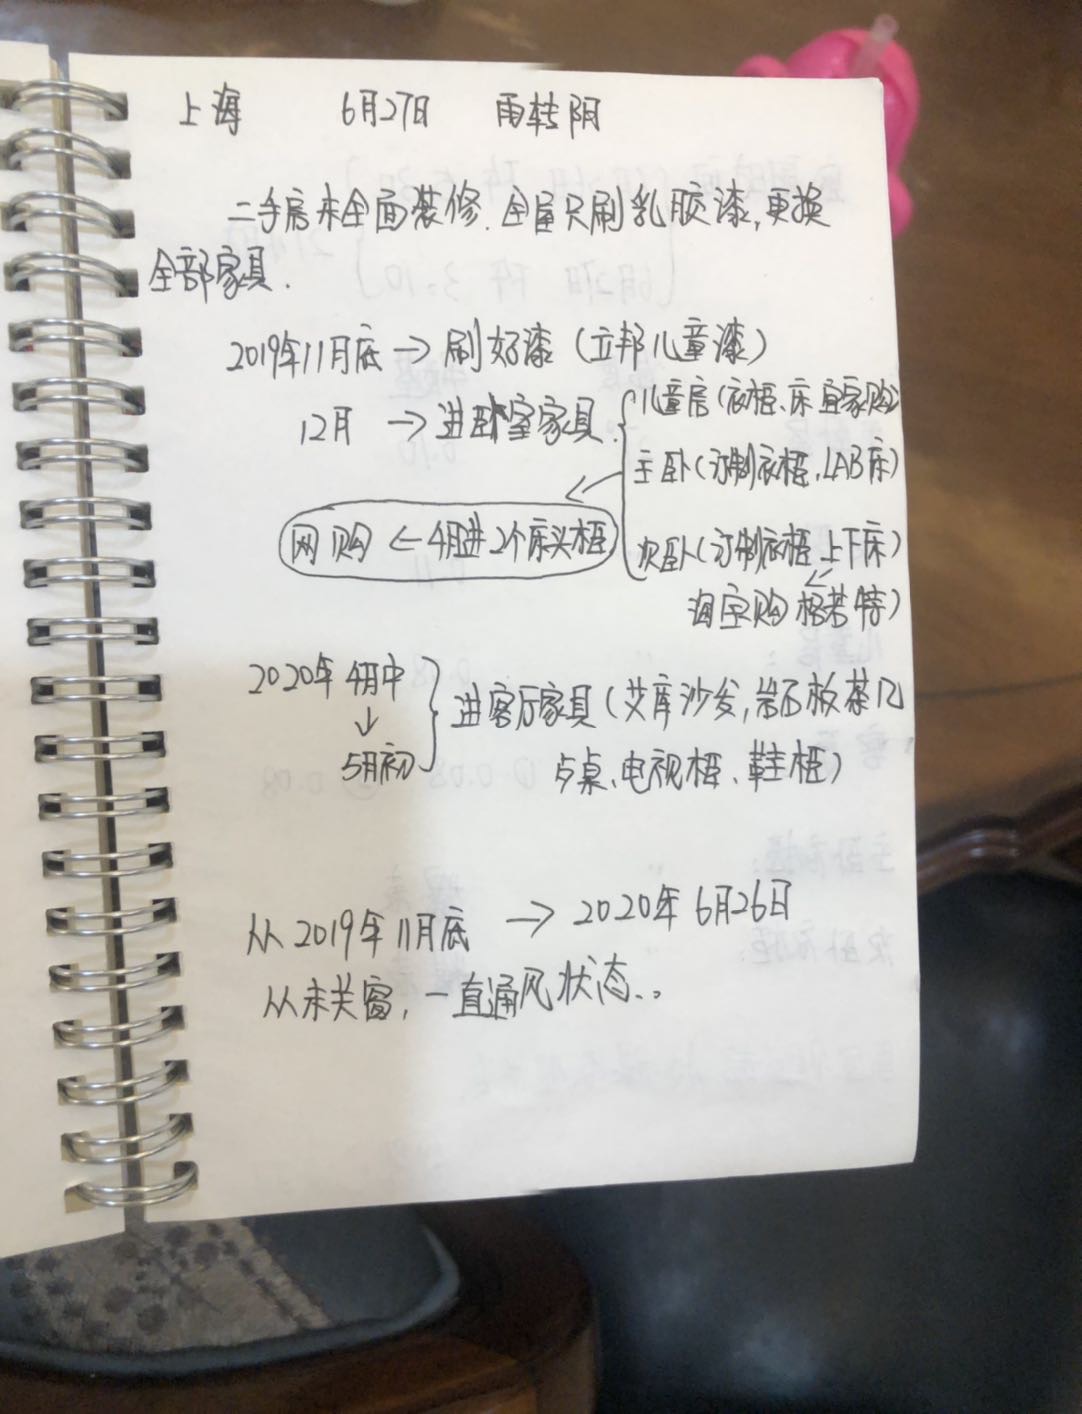 上海 6月27日 雨转阴
二手房未全面装修.全屋只刷乳胶漆,更换
全部家具.
2019年11月底→刷好漆(立邦儿童漆)
12月 →进卧室家具
儿童房(衣柜、床宜家购)
主卧(订制衣柜,LAB床)
网购 ← 4月进2个床头柜
次卧(订制衣柜 上下床)
淘宝购 格若特)
2020年4月中
↓
5月初
进客厅家具(艾库沙发,岩石板茶几
点桌、电视柜、鞋柜)
从2019年11月底 → 2020年6月26日
从未关窗,一直通风状态..